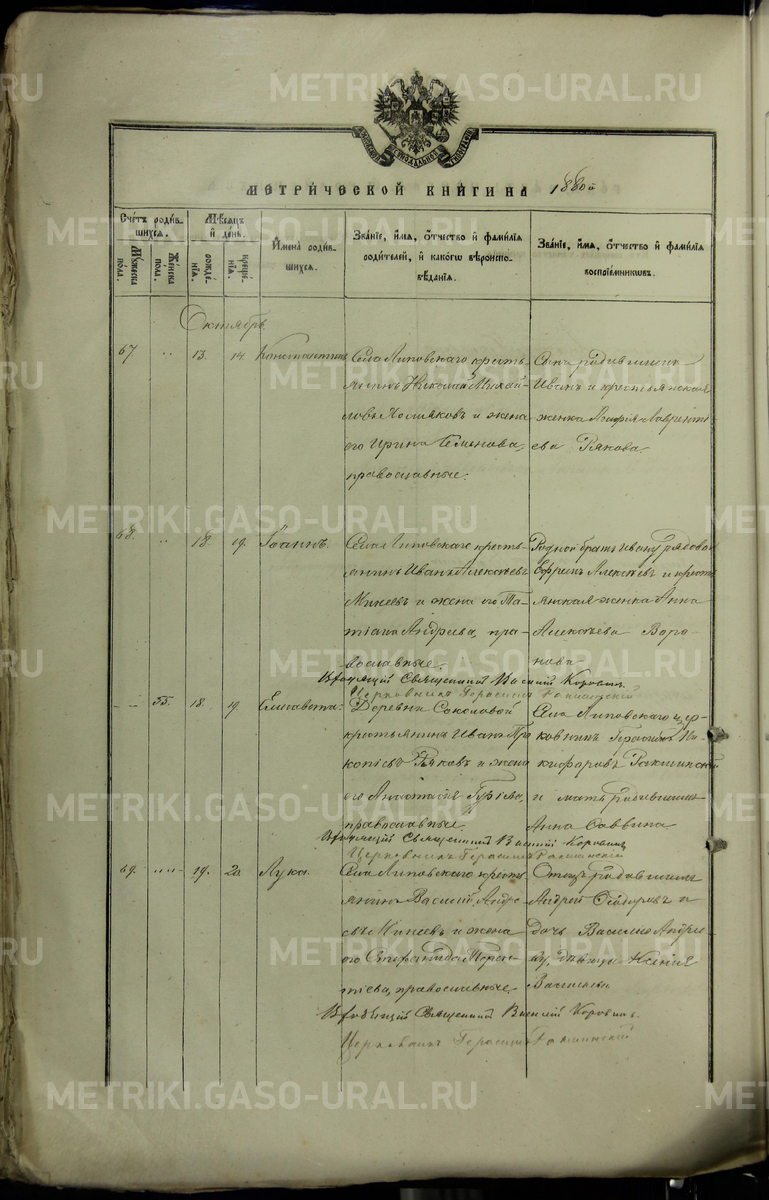 METRIKI.GASO-URAL.RU
МЕТРИ́ЧЕСКОЙ КНИ́ГИ НА 1880 й
Сче́тъ роди́вшихся.
Му́жеска по́ла.
Же́нска по́ла.
Мѣ́сяцъ и҆ де́нь.
рожде́нїя.
креще́нїя.
И҆мена̀ роди́вшихся.
Зва́нїе, и҆́мя, ѻ҆́тчество и҆ фами́лїя роди́телей, и҆ како́гѡ вѣроисповѣ́данїя.
Зва́нїе, и҆́мя, ѻ҆́тчество и҆ фами́лїя воспрїе́мникѡвъ.
Октябрь
67 " 13. 14. Константинъ
Села Липовскаго кресть-
янинъ Николай Михай-
ловъ и жена
его Ирина Семенова,
православные.
Сынъ родившихъ
Иванъ и крестьянская
женка Лавренть-
ева
68. " 18. 19. Іоаннъ.
Села Липовскаго кресть-
янинъ Иванъ Алексѣевъ
Минеевъ и жена его Та-
тіана Андреева, пра-
вославные.
Родной братъ Ивану рядовой
Ефремъ Алексѣевъ и кресть-
янская женка Анна
Алексѣева Воро-
нова
Священникъ Василій Коровинъ
Церковникъ Герасимъ
" 55. 18. 19. Елисавета.
Деревни Соколовой
крестьянинъ Иванъ Про-
копіевъ и жена
его Анастасія
православные.
Села Липовскаго цер-
ковникъ Герасимъ Ни-
кифоровъ
и мать родившихъ
Анна Саввина
Священникъ Василій Коровинъ
Церковникъ Герасимъ
69. " 19. 20 Лука.
Села Липовскаго кресть-
янинъ Василій Андре-
евъ Минеевъ и жена
его Стефанида Терен-
тіева, православные.
Отецъ родившихъ
Андрей Сидоровъ и
дочь Василію Андре-
еву, дѣвица Ксенія
Васильева
Священникъ Василій Коровинъ.
Церковникъ Герасимъ